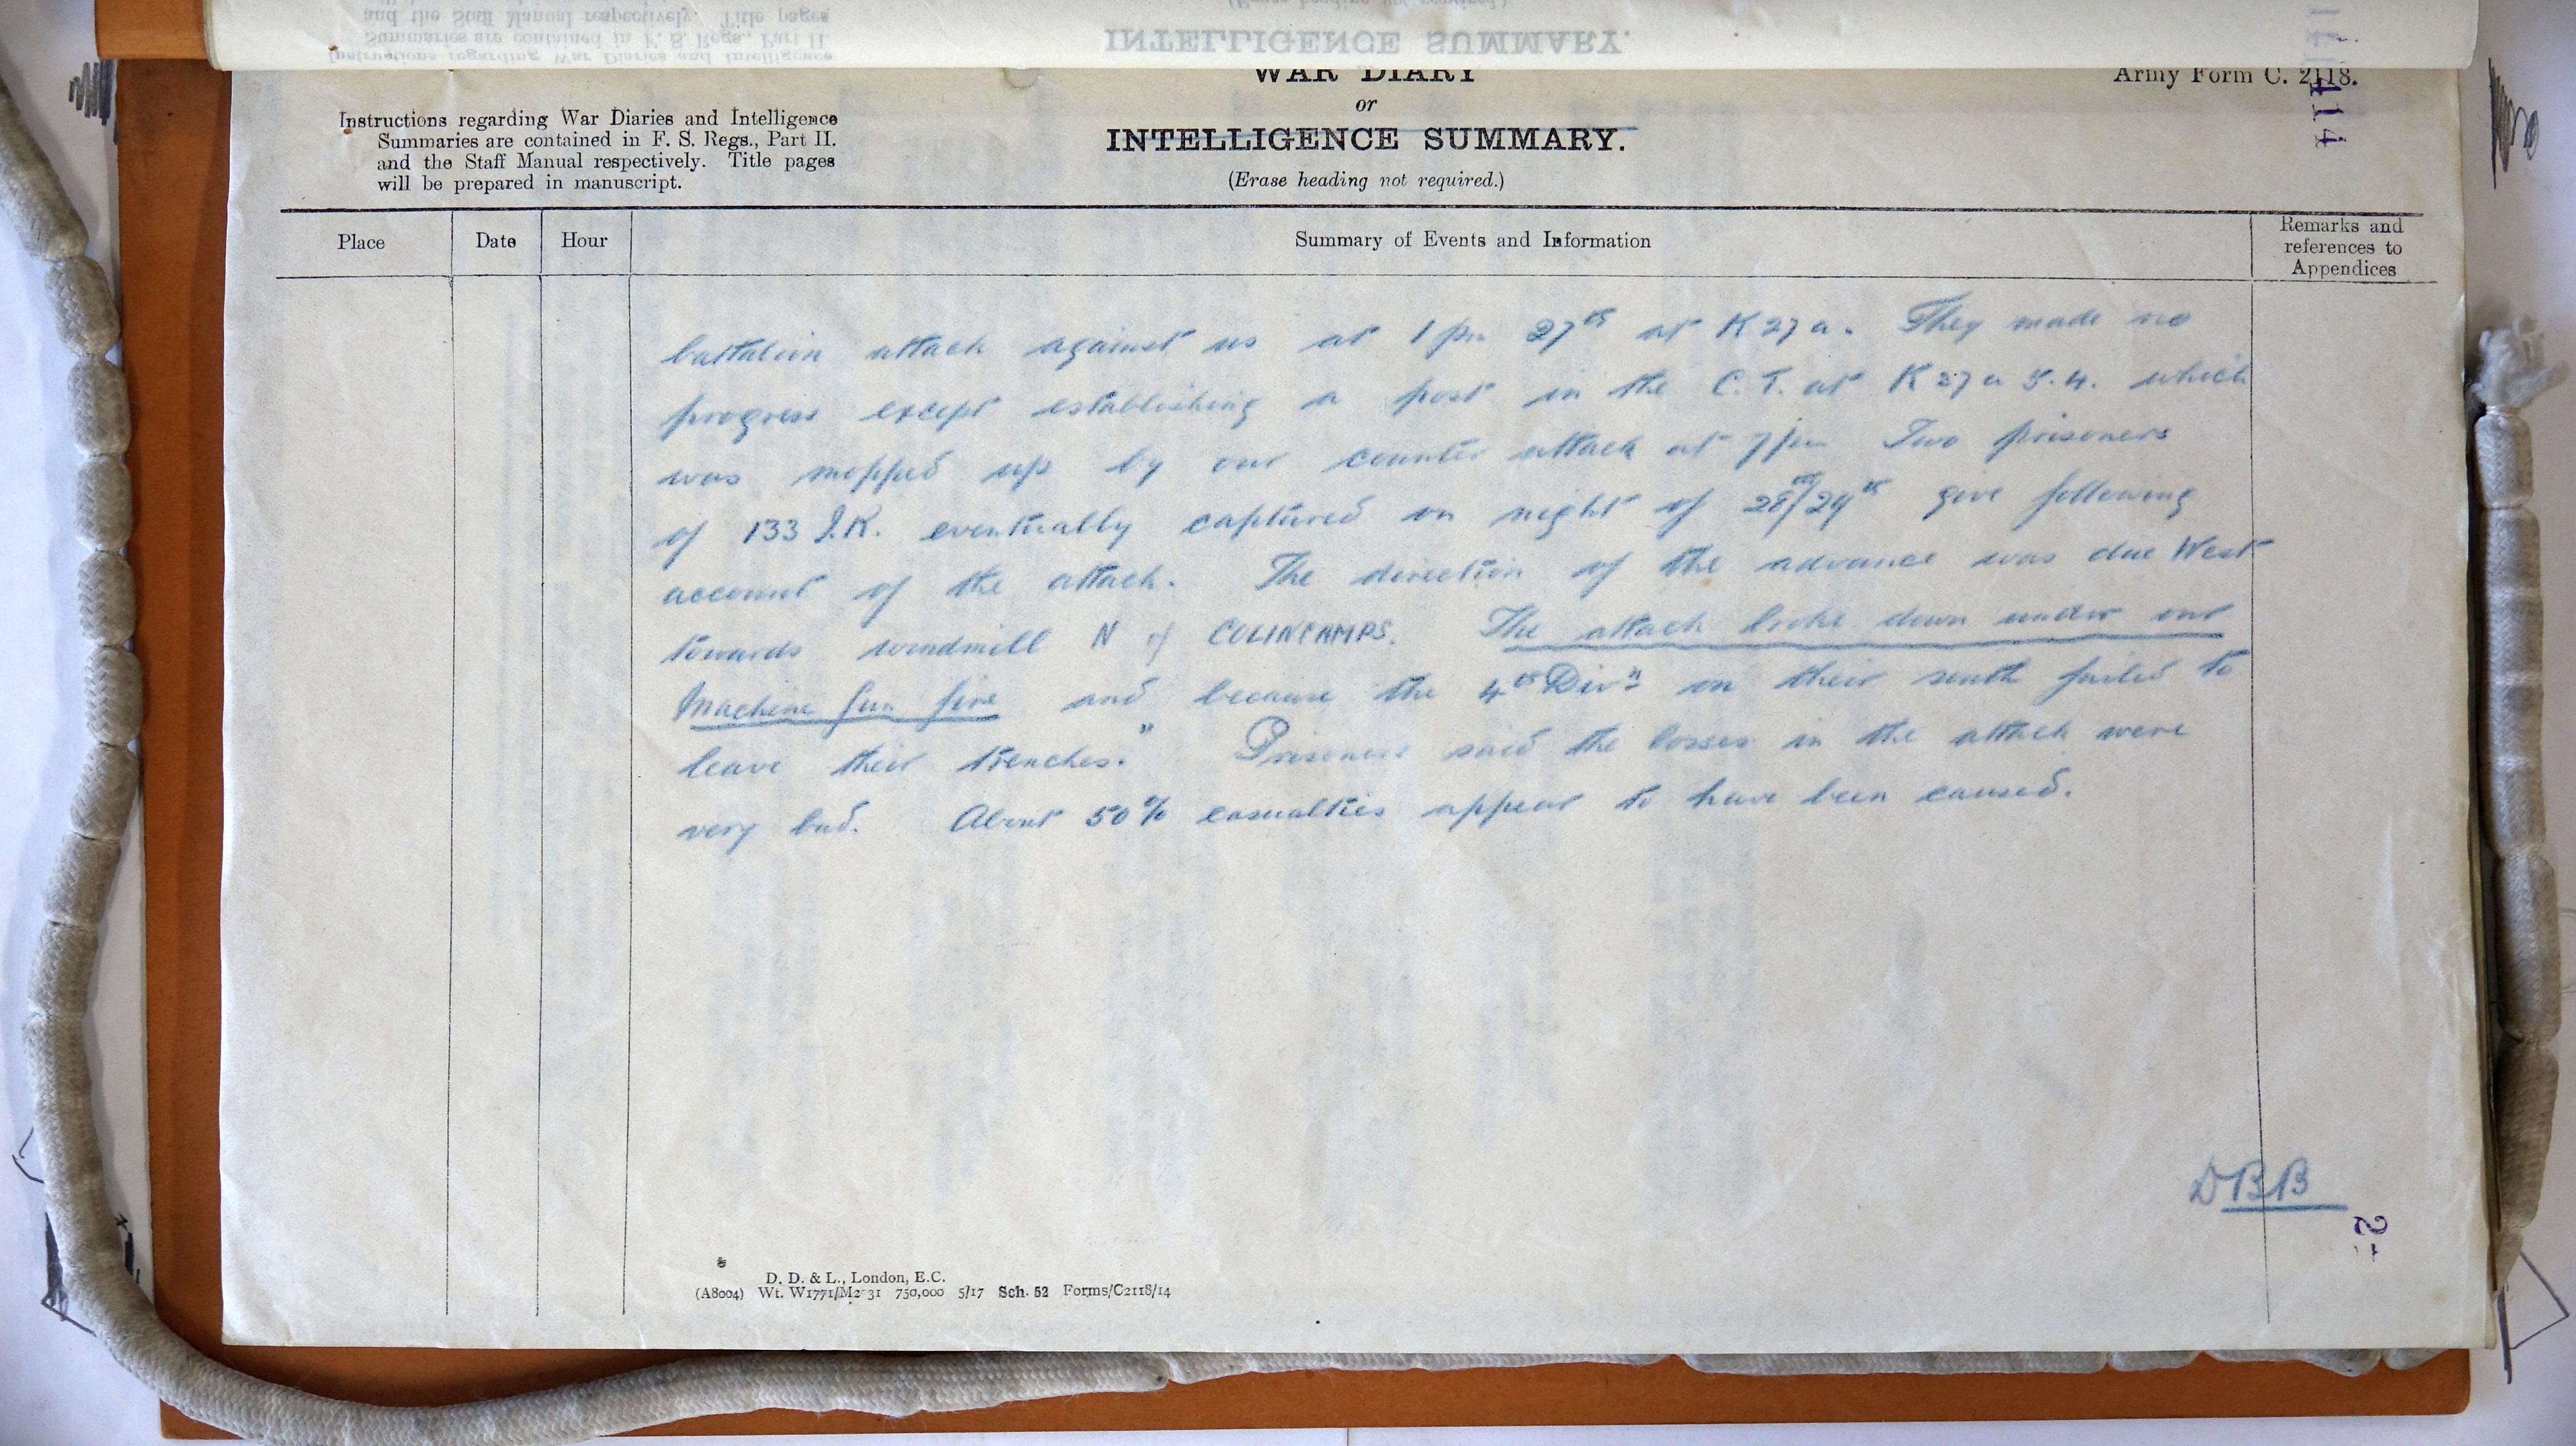 WAR DIARY
or
INTELLIGENCE SUMMARY.
(Erase heading not required.)
Army Form C. 2118.
Instructions regarding War Diaries and Intelligence
Summaries are contained in F. S. Regs., Part II.
and the Staff Manual respectively. Title pages
will be prepared in manuscript.
Place Date Hour Summary of Events and Information Remarks and
references to
Appendices
battalion attack against us at 1 pm 27th at K 27 a. They made no
progress except establishing a post in the C.T. at K 27 a 5.4. which
was mopped up by our counter attack at 7 pm Two prisoners
of 133 I.R. eventually captured on night of 28th/29th give following
account of the attack. The direction of the advance was due West
towards windmill N of COLINCAMPS. The attack broke down under our
Machine Gun fire and because the 4th Divn on their south failed to
leave their trenches." Prisoners said the losses in the attack were
very bad. About 50% casualties appear to have been caused.
DBB
D. D. & L., London, E.C.
(A8004) Wt. W1771/M2 31 750,000 5/17 Sch. 52 Forms/C2118/14